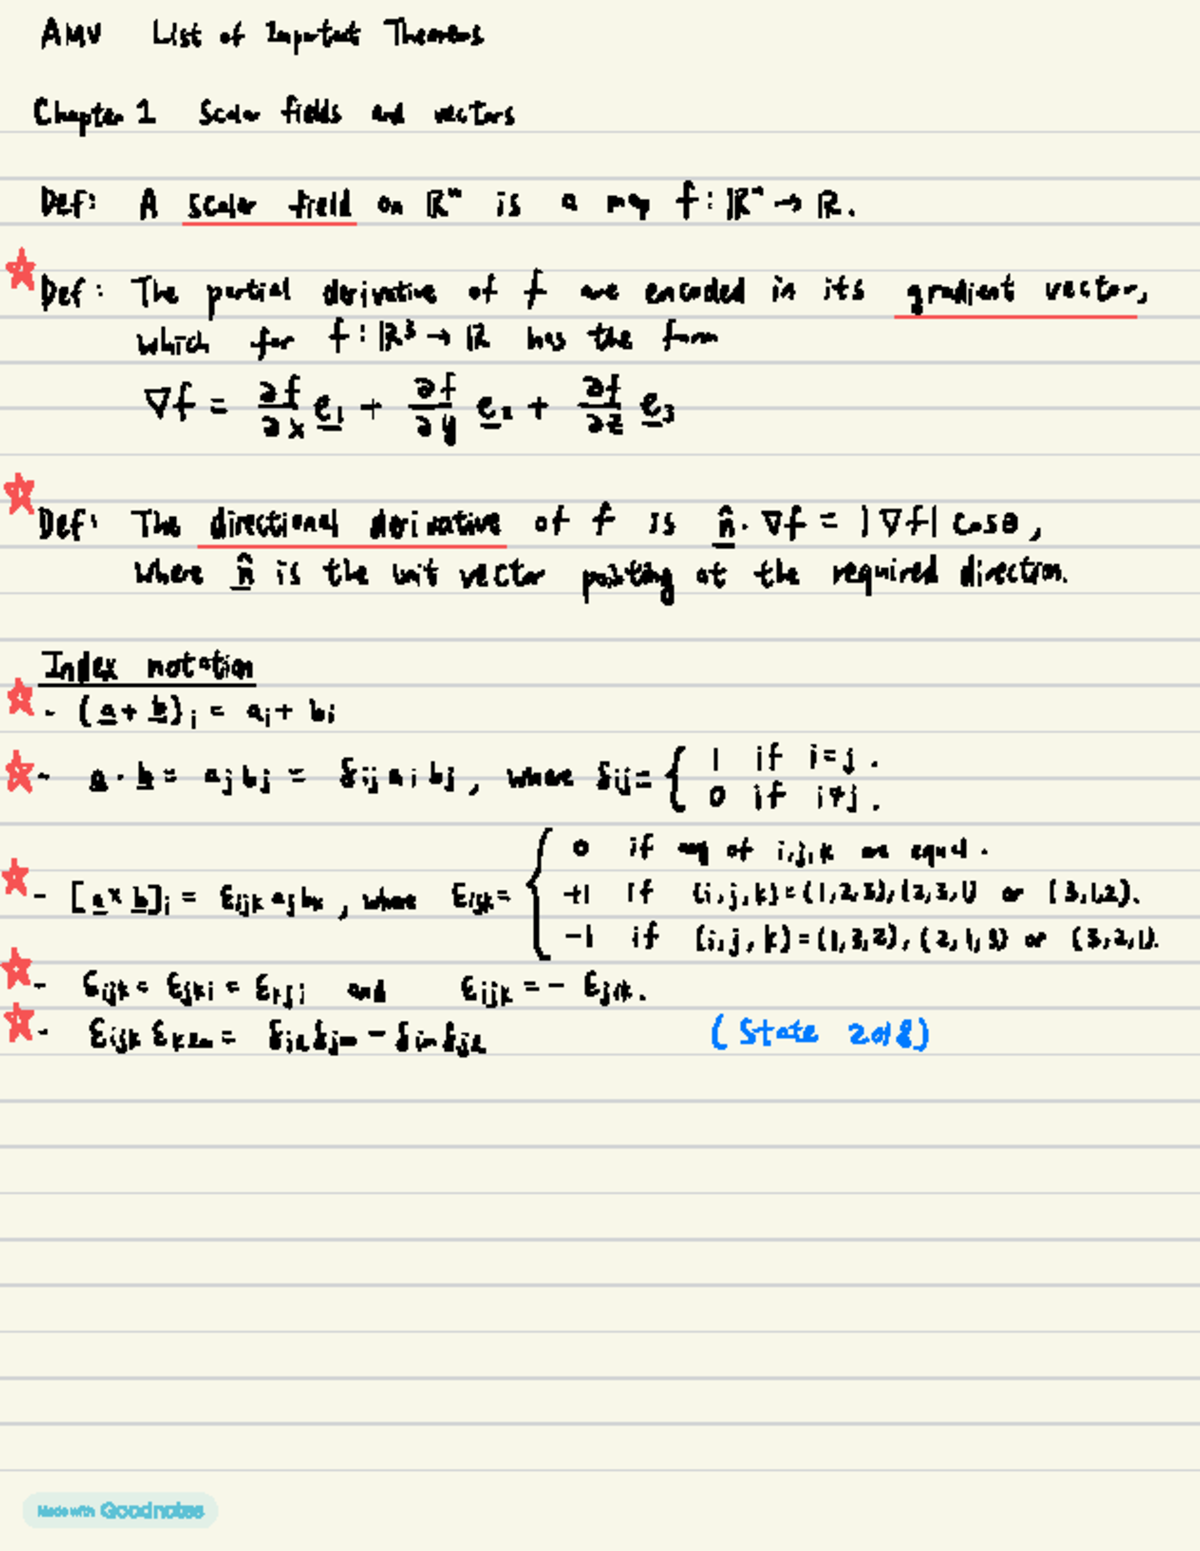 AMV List of Important Theorems
Chapter 1 Scalar fields and vectors
Def: A scalar field on ℝⁿ is a map f: ℝⁿ → ℝ.
Def: The partial derivative of f are encoded in its gradient vector,
which for f: ℝ³ → ℝ has the form
∇f = ∂f/∂x e₁ + ∂f/∂y e₂ + ∂f/∂z e₃
Def: The directional derivative of f is n̂ · ∇f = |∇f| cosθ,
where n̂ is the unit vector pointing at the required direction.
Index notation
- (a + b)ᵢ = aᵢ + bᵢ
- a · b = aⱼbⱼ = δᵢⱼaᵢbⱼ, where δᵢⱼ = { 1 if i=j.
0 if i≠j.
0 if any of i,j,k are equal.
- [a × b]ᵢ = εᵢⱼₖaⱼbₖ, where εᵢⱼₖ = { +1 if (i,j,k)=(1,2,3),(2,3,1) or (3,1,2).
-1 if (i,j,k)=(1,3,2),(2,1,3) or (3,2,1).
- εᵢⱼₖ = εⱼₖᵢ = and εᵢⱼₖ = - εⱼᵢₖ.
- εᵢⱼₖ εₖₗₘ = δᵢₗδⱼₘ - δᵢₘδⱼₗ (State 2018)
Made with Goodnotes